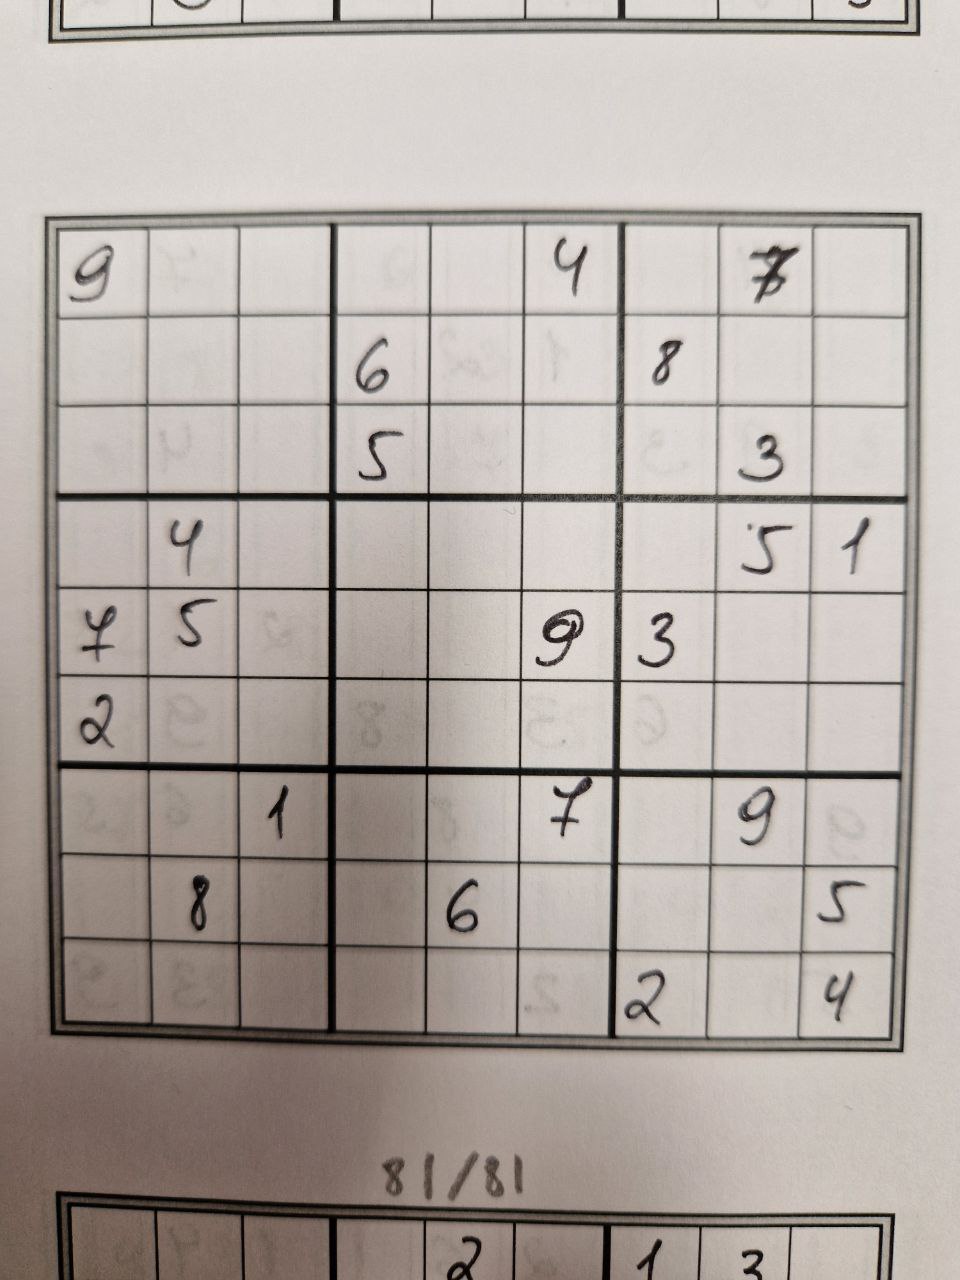 9 4 7
6 8
5 3
4 5 1
7 5 9 3
2
1 7 9
8 6 5
2 4
81/81
2 1 3